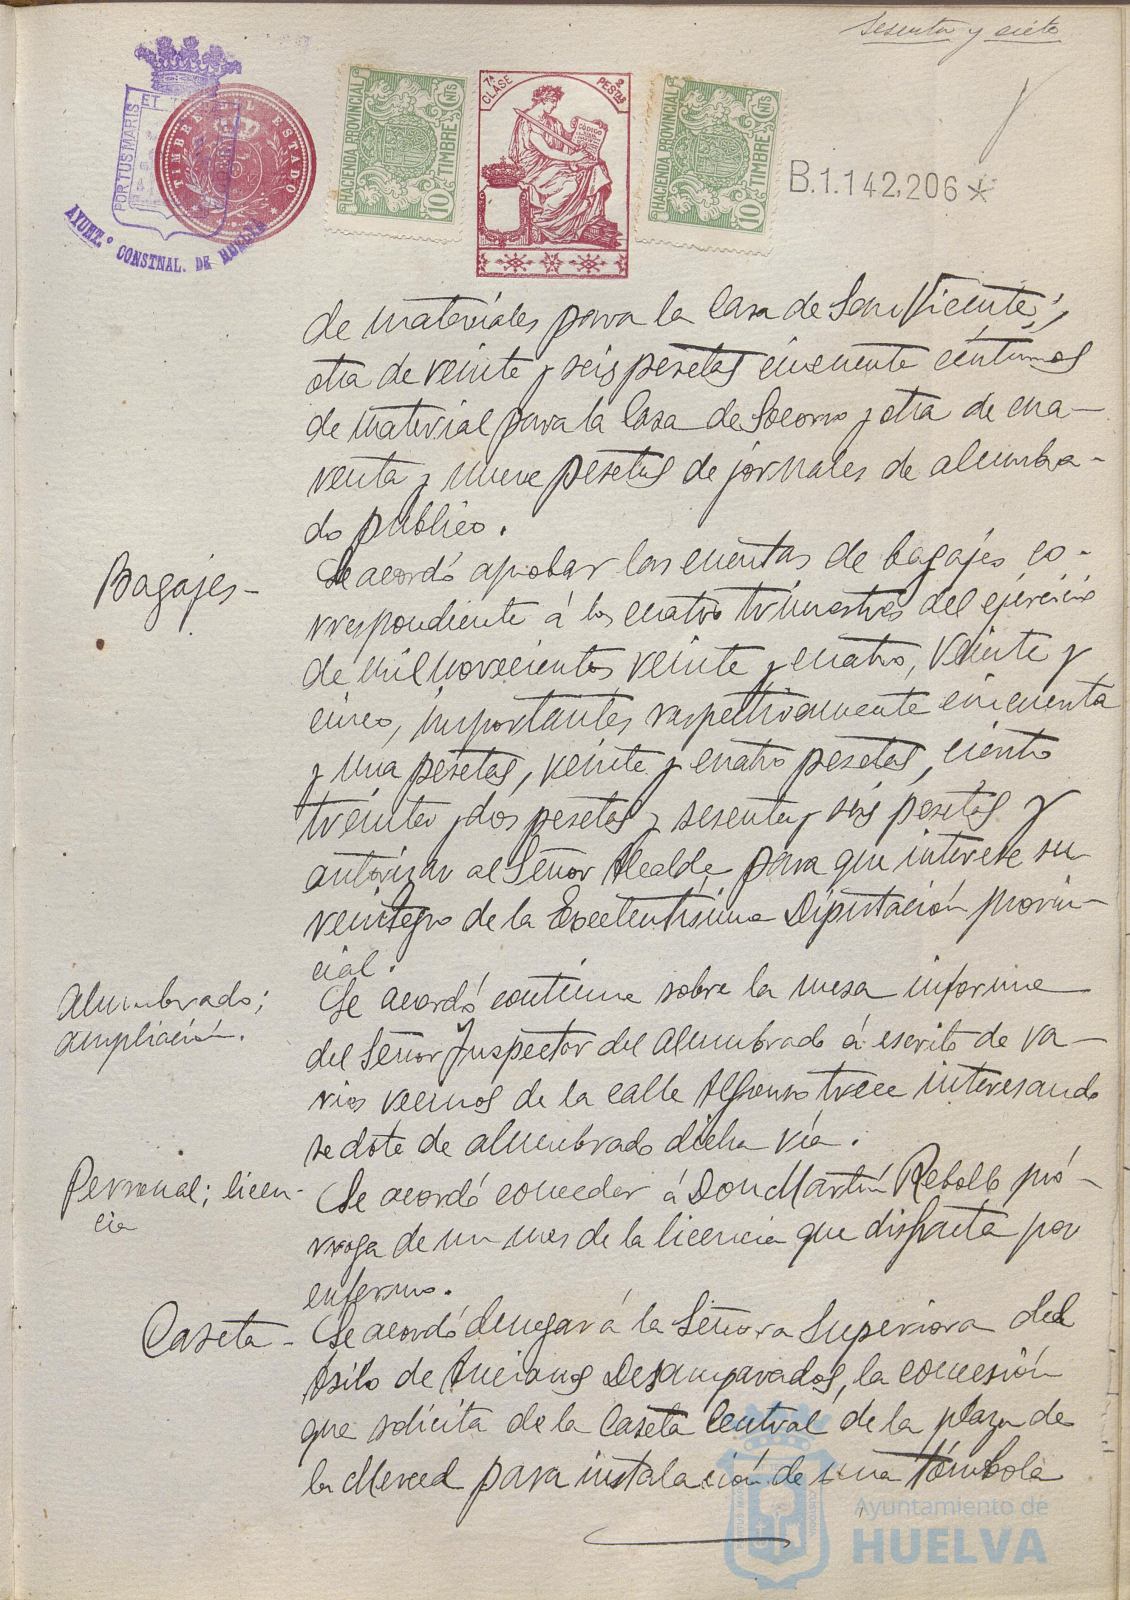 Sesenta y siete
PORTUS MARIS ET
AYUNT.º CONSTNAL. DE HUELVA
TIMBRE DEL ESTADO
HACIENDA PROVINCIAL
10 Cnts
TIMBRE
7ª CLASE
2 PESTAS
CÓDIGO
HACIENDA PROVINCIAL
10 Cnts
TIMBRE
B.1.142.206*
de materiales para la Casa de San Vicente;
otra de veinte y seis pesetas cincuenta céntimos
de material para la Casa de Socorro y otra de cua-
renta y nueve pesetas de jornales de alumbra-
do público.
Bagajes-
Se acordó aprobar las cuentas de bagajes co-
rrespondiente á los cuatro trimestres del ejercicio
de mil novecientos veinte y cuatro, veinte y
cinco, importantes respectivamente cincuenta
y una pesetas, veinte y cuatro pesetas, ciento
treinta y dos pesetas y sesenta y seis pesetas y
autorizar al Señor Alcalde para que interese su
reintegro de la Excelentísima Diputación provin-
cial.
Alumbrado;
ampliación.
Se acordó continue sobre la mesa informe
del Señor Inspector del alumbrado á escrito de va-
rios vecinos de la calle Alfonso trece interesando
se dote de alumbrado dicha vía.
Personal; licen-
cia
Se acordó conceder á Don Martín Rebollo pró-
rroga de un mes de la licencia que disfruta por
enfermo.
Caseta-
Se acordó denegar á la Señora Superiora del
Asilo de Ancianos Desamparados, la concesión
que solicita de la Caseta Central de la plaza de
la Merced para instalación de una tómbola
Ayuntamiento de
HUELVA